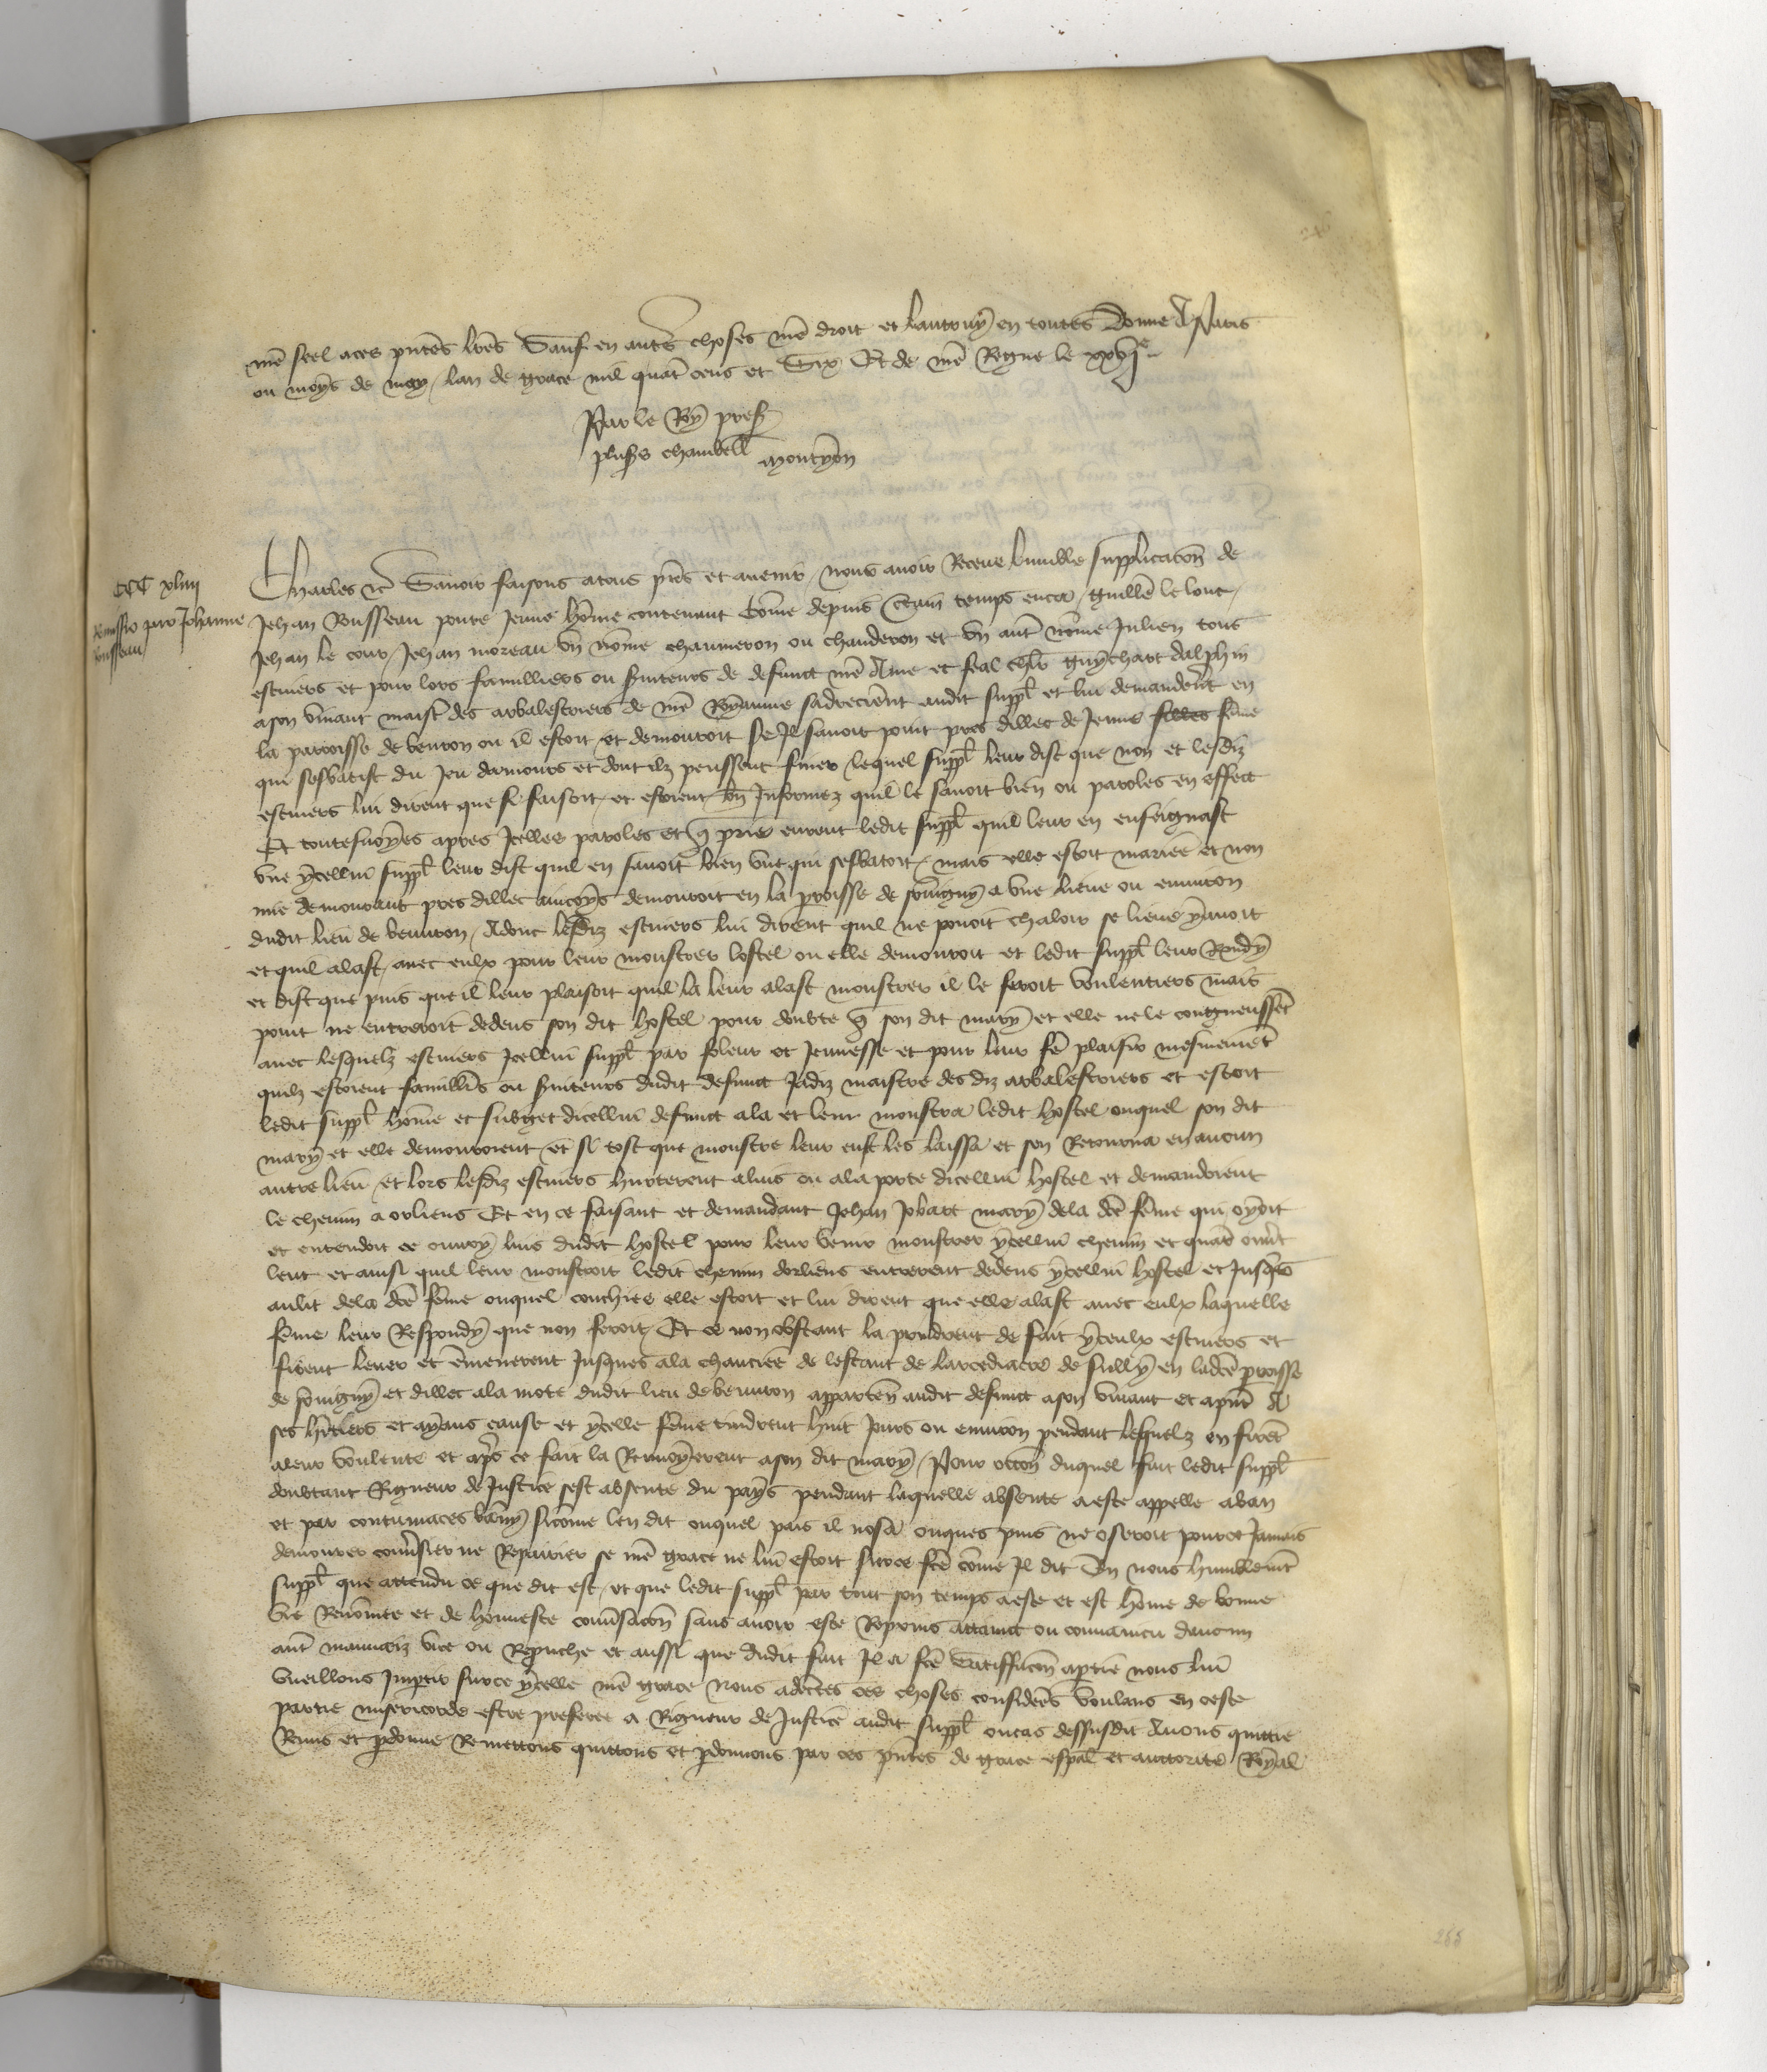 mẽ seel aces pñtes lrẽs Sauf en autres choses mẽ droit et lautruy en toutes Donne A Paris
ou moys de may / lan de grace mil quatr cens et Six Et de mẽ Regne le xxvjᵉ
Par le Roy pres̃
plus̃s chambell̃ Montyon
CCC xliiij
Remissio pro Johanne
Rousseau
Charles rc̃ Sauoir faisons atous pñs et auenir / nous auoir Receue lumble supplicacõn de
Jehan Rousseau poure Jeune hõme contenant Cõme depuis c̃tain temps enca / guillẽ le lour /
Jehan le cour / Jehan moreau vn nõme chaumeron ou chanderon et vn autr nõme Julien tous
escuiers et pour lors familliers ou s̃uiteurs de defunct mẽ Ame et feal chlr̃ guychart dalphin
ason viuant maistr des arbalestriers de mẽ Royaume sadrecier̃nt audit suppl̃ et lui demander̃nt en
la parroisse de beuron ou il estoit et demouroit Se Il sauoit point pres dillec de Jeune filles fẽme
qui sesbatist du Jeu damours et dont ilz peussent finer lequel suppl̃ leur dist que non et lesdiz
escuiers lui dirent que si faisoit / et estoient bñ Informez quil le sauoit bien ou paroles en effect
Et toutesuoyes apres Icelles paroles et q̃ prie eurent ledit suppl̃ quil leur en enseignast
vne ycellui suppl̃ leur dist quil en sauoit bien vne qui sesbatoit / mais elle estoit mariee et non
mie demourant pres dillec aincoys demouroit en la p̃roisse de souuigny a vne lieue ou enuiron
dudit lieu de beuuron / Adonc lesdiz escuiers lui dirent quil ne pouoit chaloir se lieue yauoit
et quil alast / auec eulx pour leur monstrer lostel ou elle demouroit et ledit suppl̃ leur Rñdy
et dist que puis que il leur plaisoit quil la leur alast monstrer il le feroit voulentiers mais
point ne entreroit dedens son dit hostel pour doubte q̃ son dit mary et elle ne le congneussẽt
auec lesquelz escuiers Icellui suppl̃ par foleur et Jeunesse et pour leur fẽ plaisir mesmemẽt
quilz estoient familliers ou s̃uiteurs dudit defunct Jadiz maistre des diz arbalestriers et estoit
ledit suppl̃ hõme et subget dicellui defunct ala et leur monstra ledit hostel ouquel son dit
mary et elle demouroient et si tost que monstre leur eust les laissa et sen Retourna en aucun
autre lieu / et lors lesdiz escuiers hurterent aluis ou ala porte dicellui hostel et demandoient
le chemin a orliens Et en ce faisant et demandant Jehan Jobart mary dela dcẽ fẽme qui oyoit
et entendoit ce ouury luis dudit hostel pour leur venir monstrer ycellui chemin et quãt ouu̾t
leut et ainsi quil leur monstroit ledit chemin dorliens entrerent dedens ycellui hostel et Jusq̃s
aulit dela dcẽ fẽme ouquel couchiee elle estoit et lui dirent que elle alast auec eulx laquelle
fẽme leur Respondy que non feroit / Et ce non obstant la prindrent de fait yceulx escuiers et
firent leuer et ẽmenerent Jusques ala chauciee de lestant de larcediacre de sully en ladcẽ p̃roisse
de souuigny et dillec ala mote dudit lieu de beuuron apparteñ audit defunct ason viuant et apñt A
ses hẽtiers et ayans cause et ycelle fẽme tindrent huit Jours ou enuiron pendant lesquelz en firẽt
aleur voulente et ap̃s ce fait la Renuoyerent ason dit mary / Pour occõn duquel fait ledit suppl̃
doubtant Rigueur de Justice sest absente du pays pendant laquelle absente aeste appelle aban
et par contumaces bãny sicõme len dit ouquel pais il nosa onques puis ne oseroit pouret Jamais
demourer conu̾ser ne Repairier se mẽ grace ne lui estoit surce fcẽ cõme Il dit En nous humblemt̃
suppl̃ que attendu ce que dit est / et que ledit suppl̃ par tout son temps aeste et est hõme de bonne
vie Renõmee et de honneste conu̾sacõn sans auoir este Repprins attaint ou conuaincu daucun
autr̃ mauuaiz vice ou Repruche et aussi que dudit fait Il a fcẽ Satisffacõn aptiẽ nous lui
vueillons Imp̃tir surce ycelle mẽ grace Nous adcẽtes ces choses considerẽs voulans en ceste
partie misericorde estre preferee a Rigueur de Justice audit suppl̃ oucas dessusdit Auons quittie
Remis et p̃donne Remettons quittons et p̃donnons par ces pñtes de grace esp̃al et auctorite Royal
265